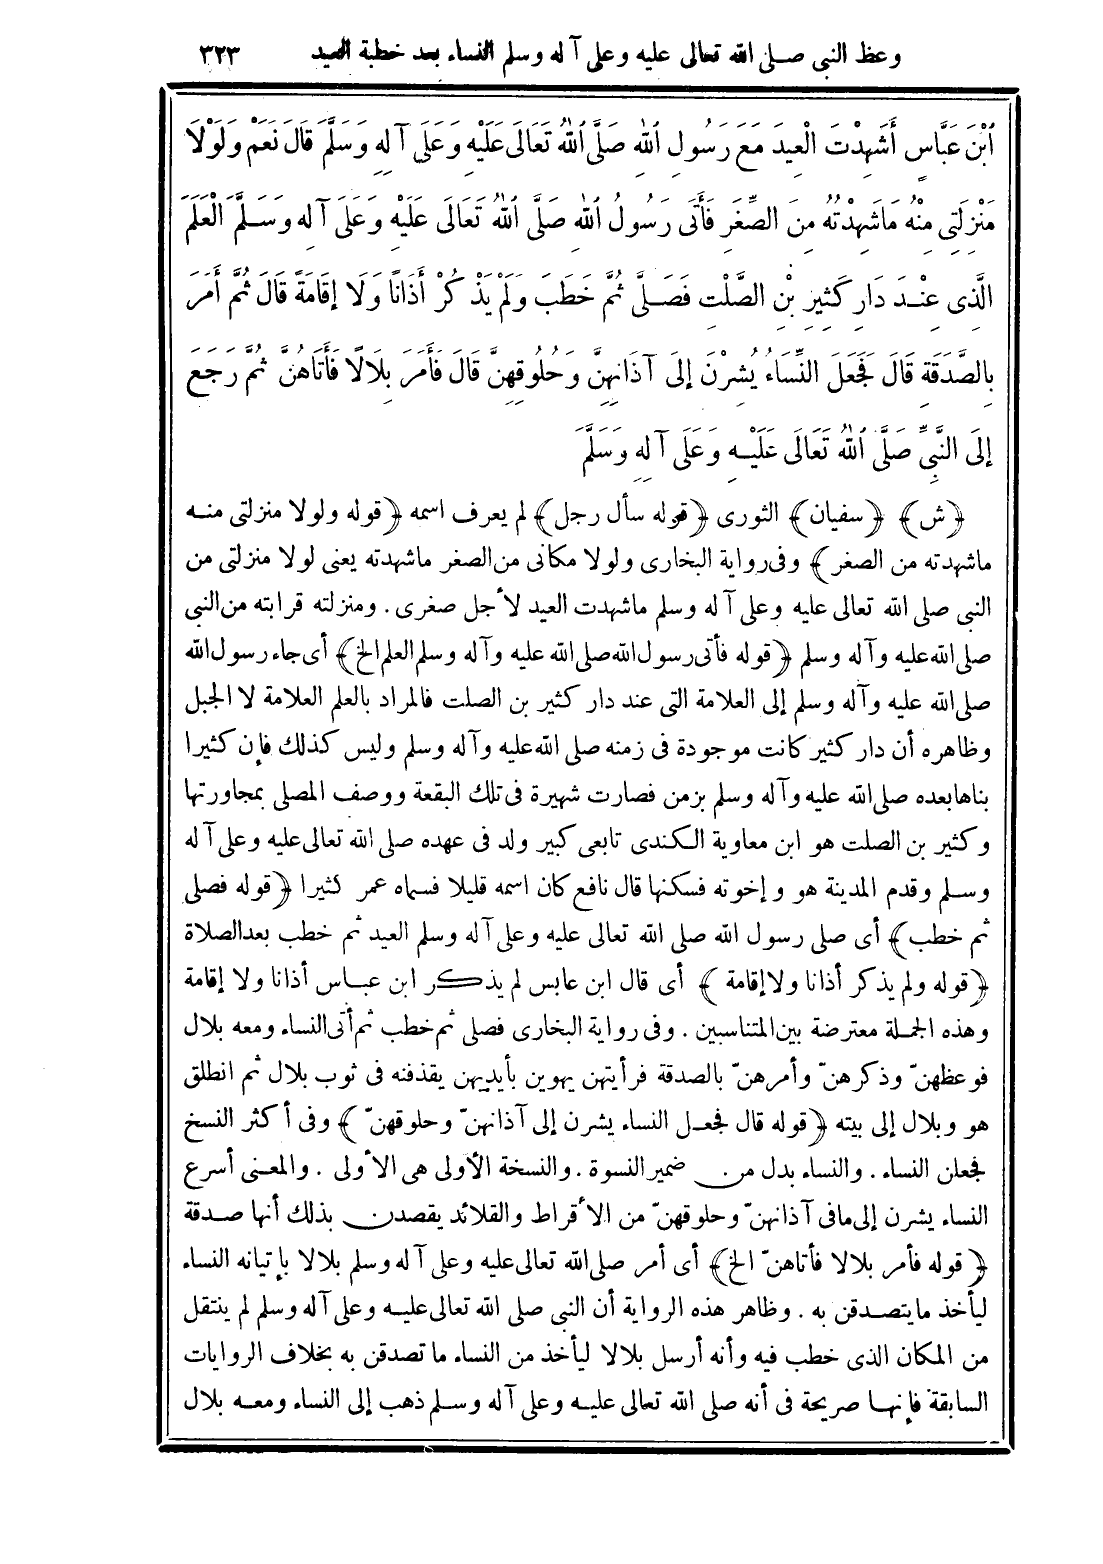 وعظ النبى صلى الله تعالى عليه وعلى آله وسلم النساء بعد خطبة العيد ٣٢٣
ٱبْنَ عَبَّاسٍ أَشَهِدْتَ الْعِيدَ مَعَ رَسُولِ ٱللهِ صَلَّى ٱللهُ تَعَالَى عَلَيْهِ وَعَلَى آلِهِ وَسَلَّمَ قَالَ نَعَمْ وَلَوْلَا
مَنْزِلَتِى مِنْهُ مَاشَهِدْتُهُ مِنَ الصِّغَرِ فَأَتَى رَسُولُ ٱللهِ صَلَّى ٱللهُ تَعَالَى عَلَيْهِ وَعَلَى آلِهِ وَسَلَّمَ الْعَلَمَ
الَّذِى عِنْدَ دَارِ كَثِيرِ بْنِ الصَّلْتِ فَصَلَّى ثُمَّ خَطَبَ وَلَمْ يَذْكُرْ أَذَانًا وَلَا إِقَامَةً قَالَ ثُمَّ أَمَرَ
بِالصَّدَقَةِ قَالَ فَجَعَلَ النِّسَاءُ يُشِرْنَ إِلَى آذَانِهِنَّ وَحُلُوقِهِنَّ قَالَ فَأَمَرَ بِلَالًا فَأَتَاهُنَّ ثُمَّ رَجَعَ
إِلَى النَّبِىِّ صَلَّى ٱللهُ تَعَالَى عَلَيْهِ وَعَلَى آلِهِ وَسَلَّمَ
﴿ش﴾ ﴿سفيان﴾ الثورى ﴿قوله سأل رجل﴾ لم يعرف اسمه ﴿قوله ولولا منزلتى منه
ماشهدته من الصغر﴾ وفى رواية البخارى ولولا مكانى من الصغر ماشهدته يعنى لولا منزلتى من
النبى صلى الله تعالى عليه وعلى آله وسلم ماشهدت العيد لأجل صغرى . ومنزلته قرابته من النبى
صلى الله عليه وآله وسلم ﴿قوله فأتى رسول الله صلى الله عليه وآله وسلم العلم الخ﴾ أى جاء رسول الله
صلى الله عليه وآله وسلم إلى العلامة التى عند دار كثير بن الصلت فالمراد بالعلم العلامة لا الجبل
وظاهره أن دار كثير كانت موجودة فى زمنه صلى الله عليه وآله وسلم وليس كذلك فإن كثيرا
بناها بعده صلى الله عليه وآله وسلم بزمن فصارت شهيرة فى تلك البقعة ووصف المصلى بمجاورتها
وكثير بن الصلت هو ابن معاوية الكندى تابعى كبير ولد فى عهده صلى الله تعالى عليه وعلى آله
وسلم وقدم المدينة هو وإخوته فسكنها قال نافع كان اسمه قليلا فسماه عمر كثيرا ﴿قوله فصلى
ثم خطب﴾ أى صلى رسول الله صلى الله تعالى عليه وعلى آله وسلم العيد ثم خطب بعد الصلاة
﴿قوله ولم يذكر أذانا ولا إقامة﴾ أى قال ابن عابس لم يذكر ابن عباس أذانا ولا إقامة
وهذه الجملة معترضة بين المتناسبين . وفى رواية البخارى فصلى ثم خطب ثم أتى النساء ومعه بلال
فوعظهنّ وذكرهنّ وأمرهنّ بالصدقة فرأيتهن يهوين بأيديهن يقذفنه فى ثوب بلال ثم انطلق
هو وبلال إلى بيته ﴿قوله قال فجعل النساء يشرن إلى آذانهنّ وحلوقهنّ﴾ وفى أكثر النسخ
فجعلن النساء . والنساء بدل من ضمير النسوة . والنسخة الأولى هى الأولى . والمعنى أسرع
النساء يشرن إلى مافى آذانهنّ وحلوقهنّ من الأقراط والقلائد يقصدن بذلك أنها صدقة
﴿قوله فأمر بلالا فأتاهنّ الخ﴾ أى أمر صلى الله تعالى عليه وعلى آله وسلم بلالا بإتيانه النساء
ليأخذ مايتصدقن به . وظاهر هذه الرواية أن النبى صلى الله تعالى عليه وعلى آله وسلم لم ينتقل
من المكان الذى خطب فيه وأنه أرسل بلالا ليأخذ من النساء ما تصدقن به بخلاف الروايات
السابقة فإنها صريحة فى أنه صلى الله تعالى عليه وعلى آله وسلم ذهب إلى النساء ومعه بلال